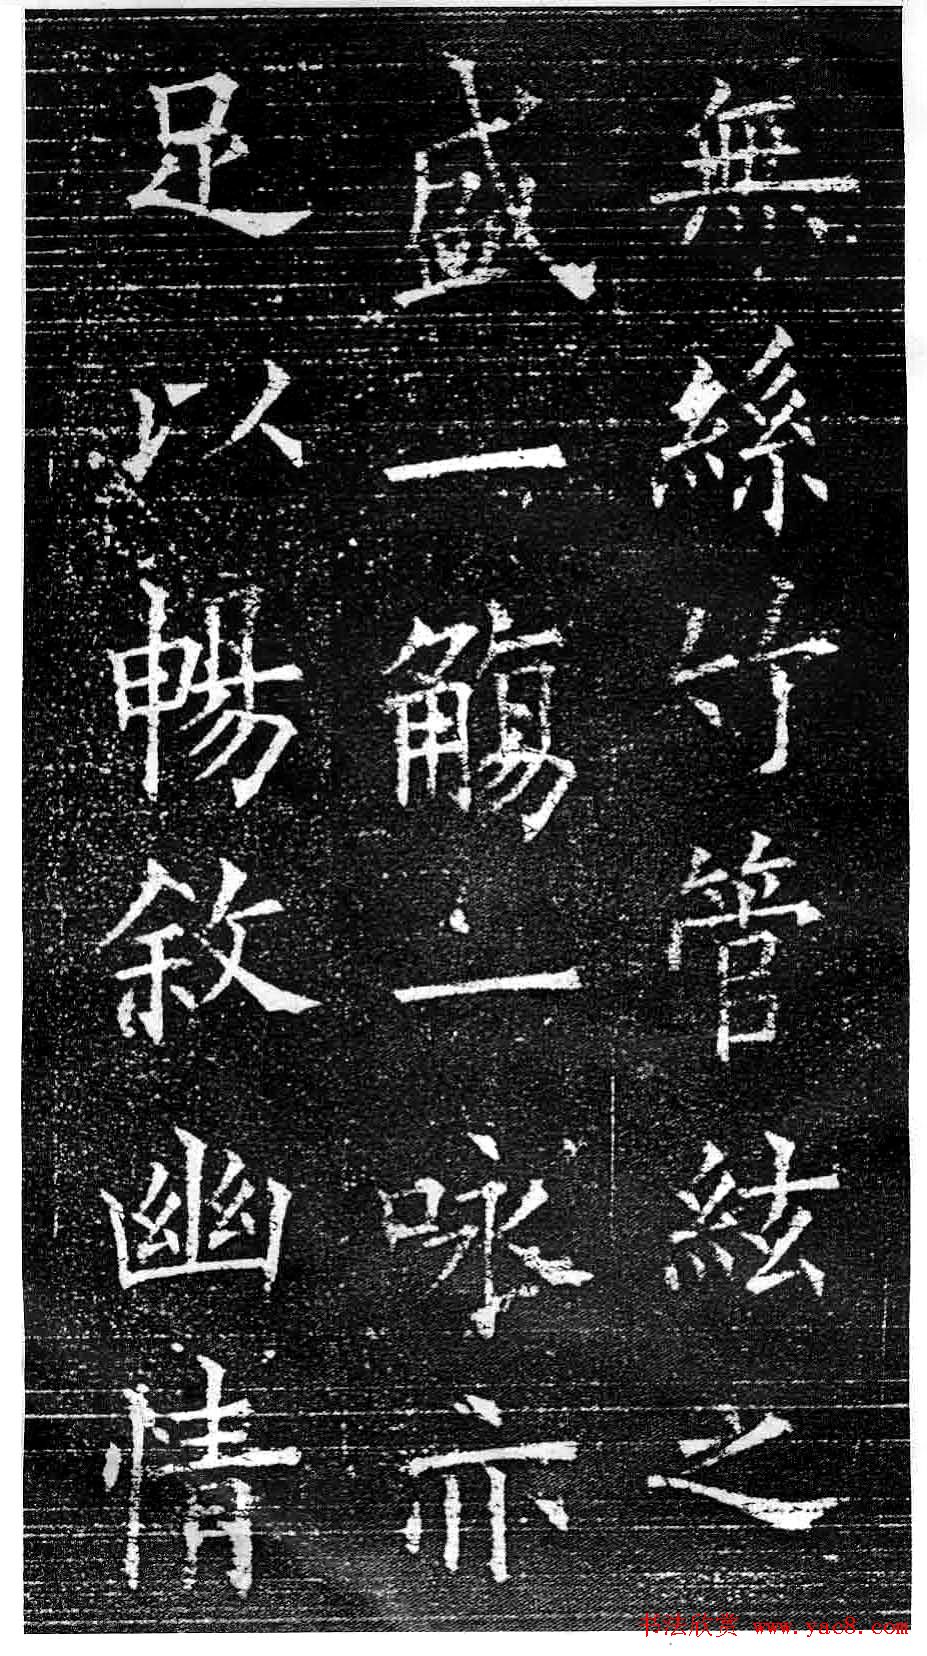 無絲竹管絃之
盛一觴一咏亦
足以暢敘幽情
书法欣赏 www.yac8.com